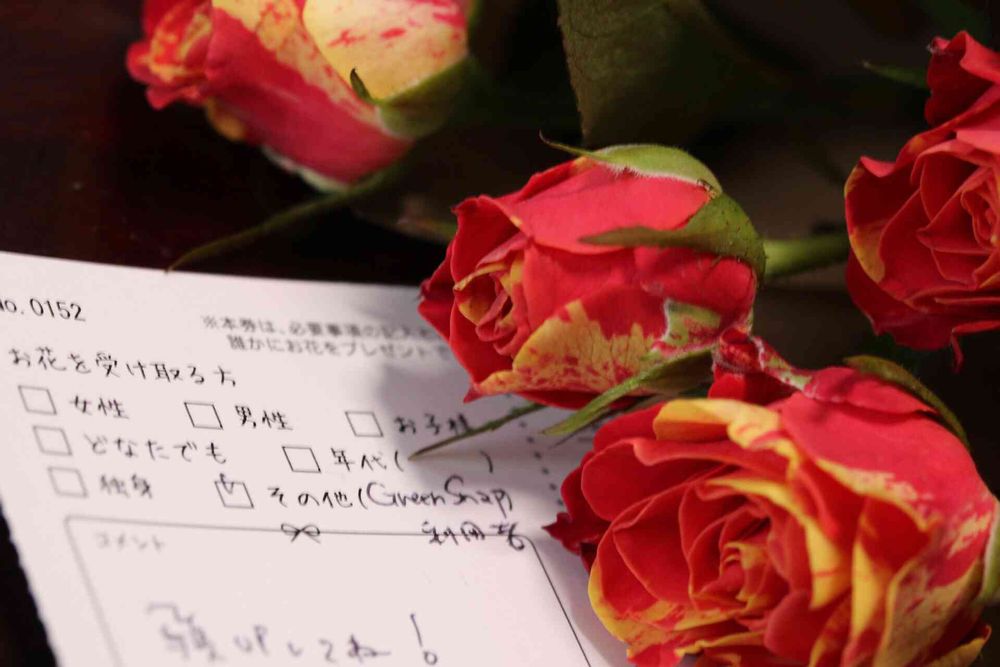 No. 0152
※本券は、必要事項の記入
誰かにお花をプレゼントで
お花を受け取る方
女性 男性 お子様
どなたでも 年代( )
独身 その他(GreenSnap)
利用者
コメント
UPしてね!